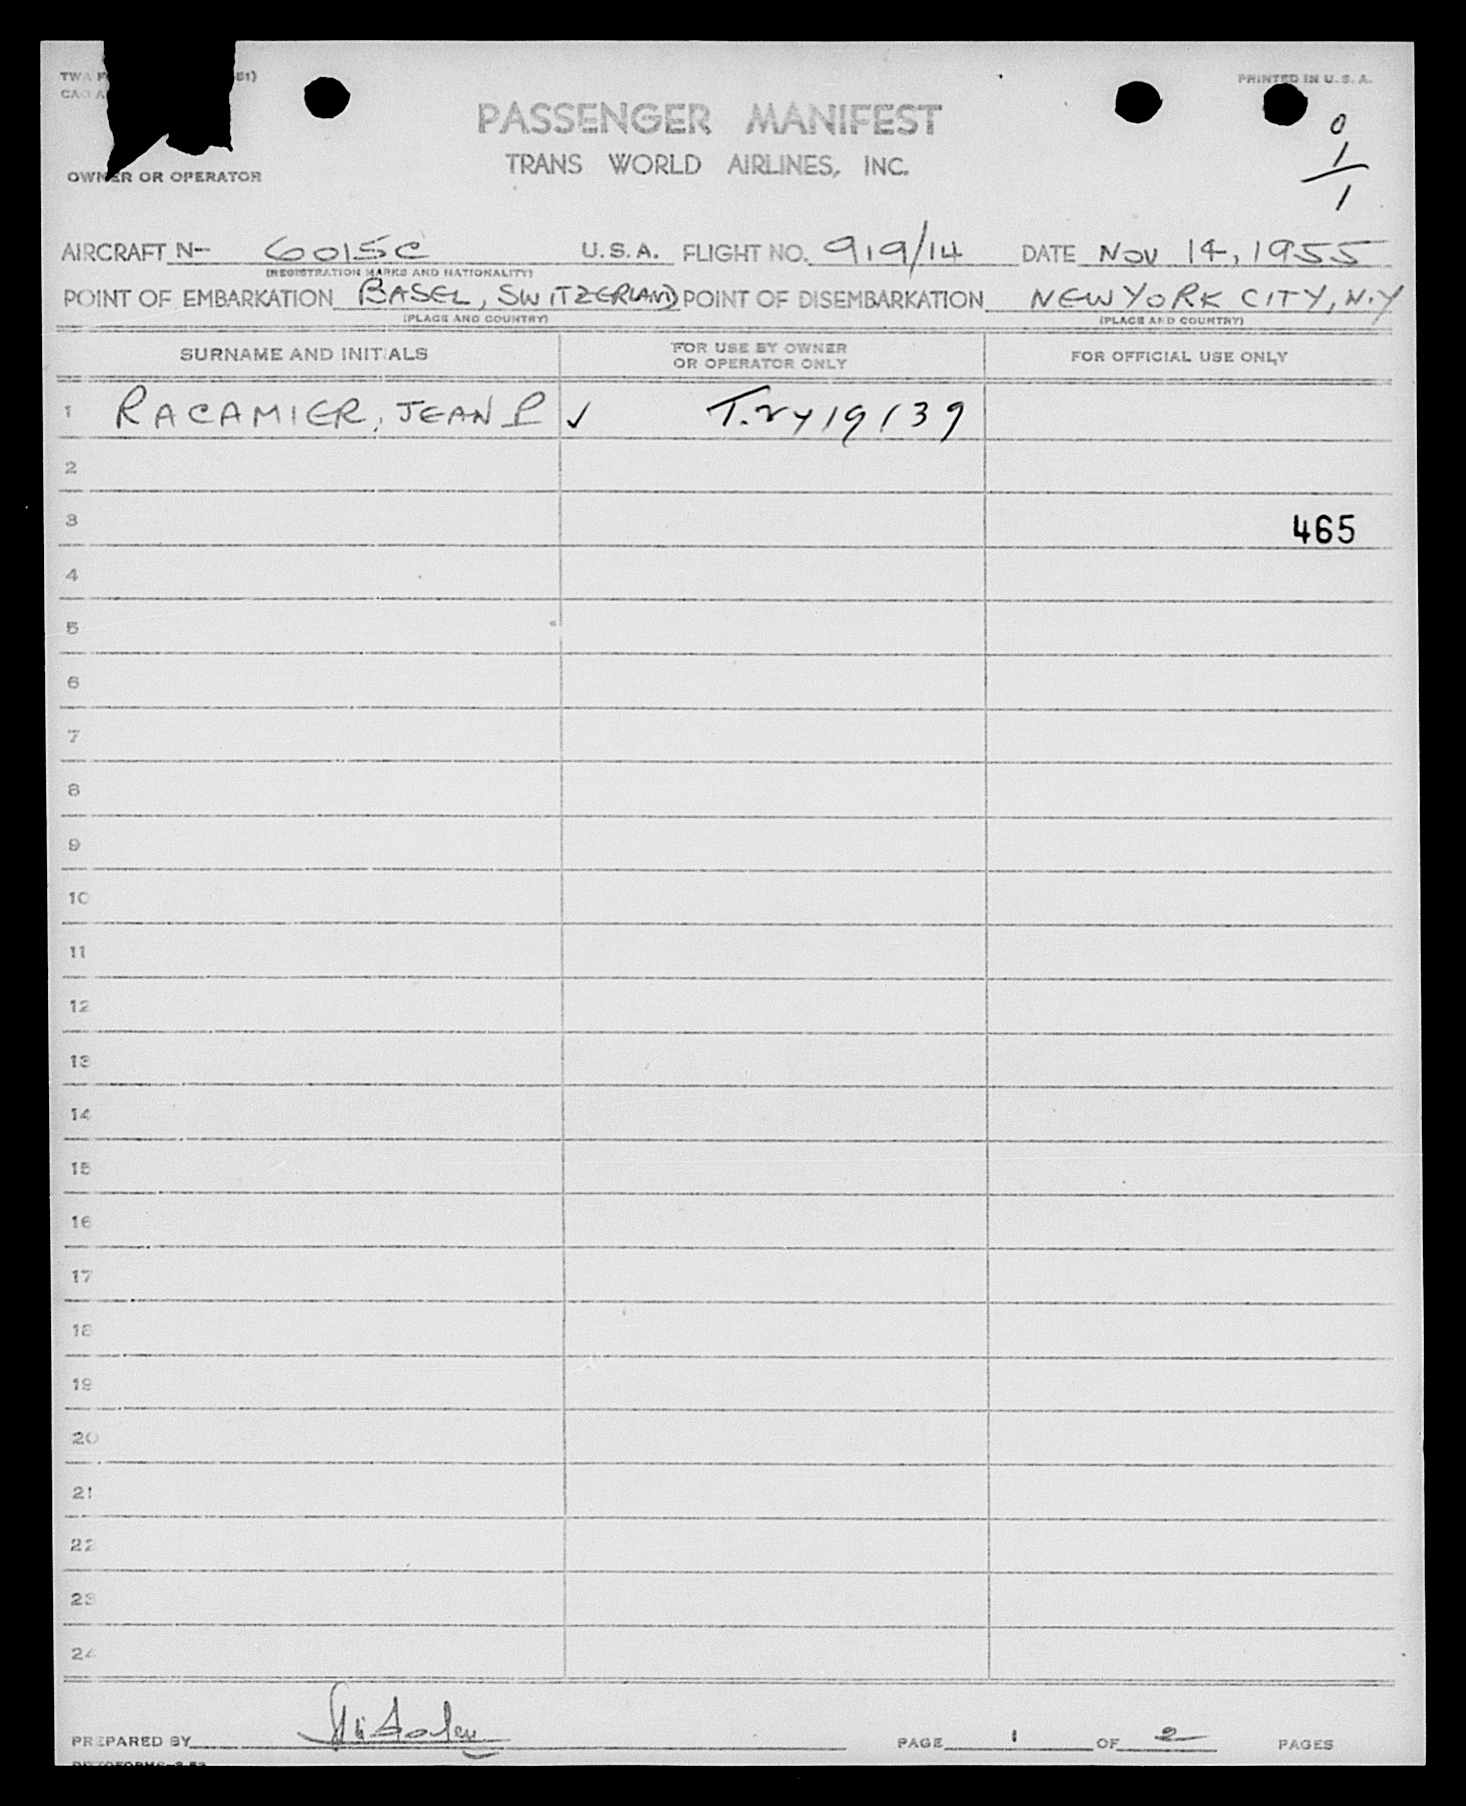 TWA F 51)
CAO A
PRINTED IN U. S. A.
PASSENGER MANIFEST
0
1
1
TRANS WORLD AIRLINES, INC.
OWNER OR OPERATOR
AIRCRAFT N- 6015C U.S.A. FLIGHT NO. 919/14 DATE NOV 14, 1955
(REGISTRATION MARKS AND NATIONALITY)
POINT OF EMBARKATION BASEL, SWITZERLAND POINT OF DISEMBARKATION NEW YORK CITY, N.Y
(PLACE AND COUNTRY) (PLACE AND COUNTRY)
SURNAME AND INITIALS FOR USE BY OWNER OR OPERATOR ONLY FOR OFFICIAL USE ONLY
1 RACAMIER, JEAN P ✓ 19139
2
3 465
4
5
6
7
8
9
10
11
12
13
14
15
16
17
18
19
20
21
22
23
24
PREPARED BY PAGE 1 OF 2 PAGES